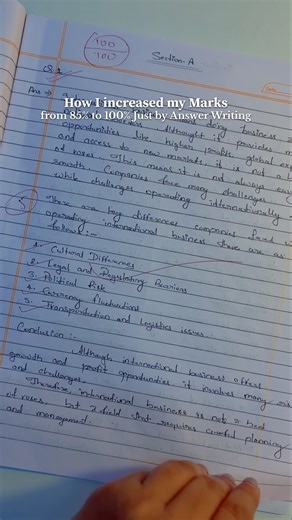 100
100
Section-A
Q.1
Ans → doing business
opportunities like higher profits, global
and access to new markets, it is not a
of roses. This means it is not always
smooth. Companies face many challenges
while operating internationally
How I increased my Marks
from 85% to 100% Just by Answer Writing
There are key differences companies faced
operating international business there are as
follows:-
1. Cultural Differences
2. Legal and Barriers
3. Political Risk
4. Currency fluctuations
5. Transportation and Logistics issues.
Conclusion :-
Although international business offers
growth and profit opportunities it involves many
and challenges.
Therefore, international business is not a bed
of roses, but a field that requires careful planning
and management.